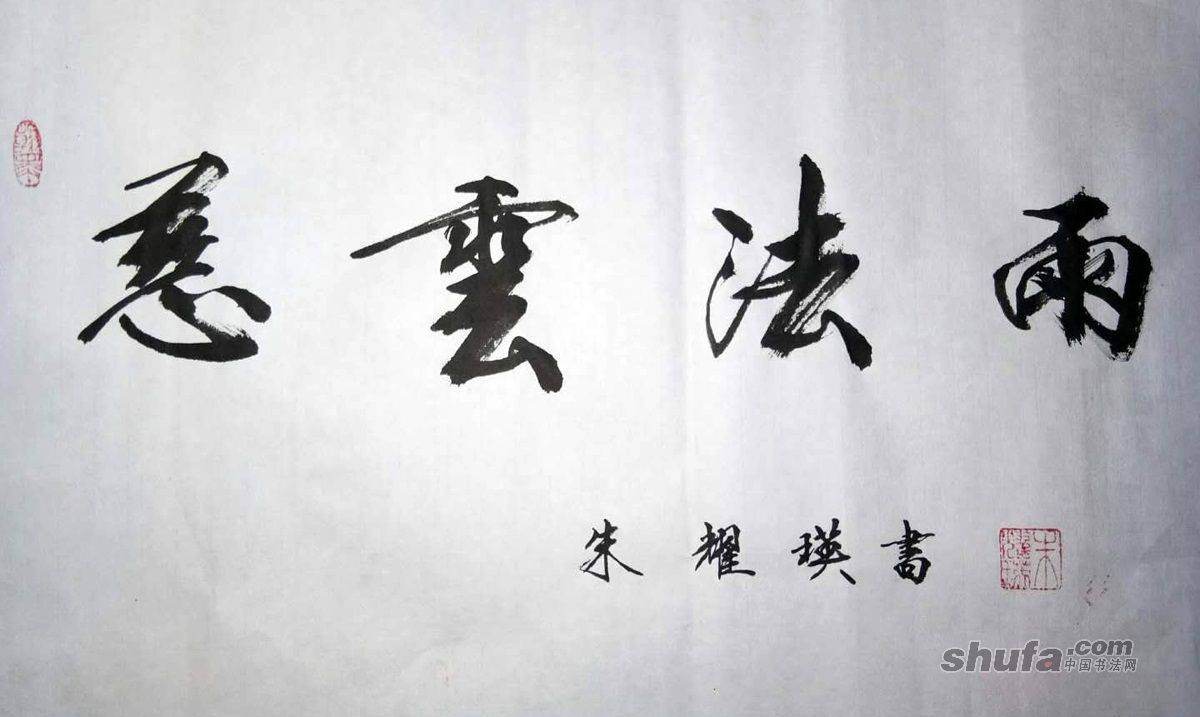 慈雲法雨
朱耀瑛書
shufa.com
中国书法网